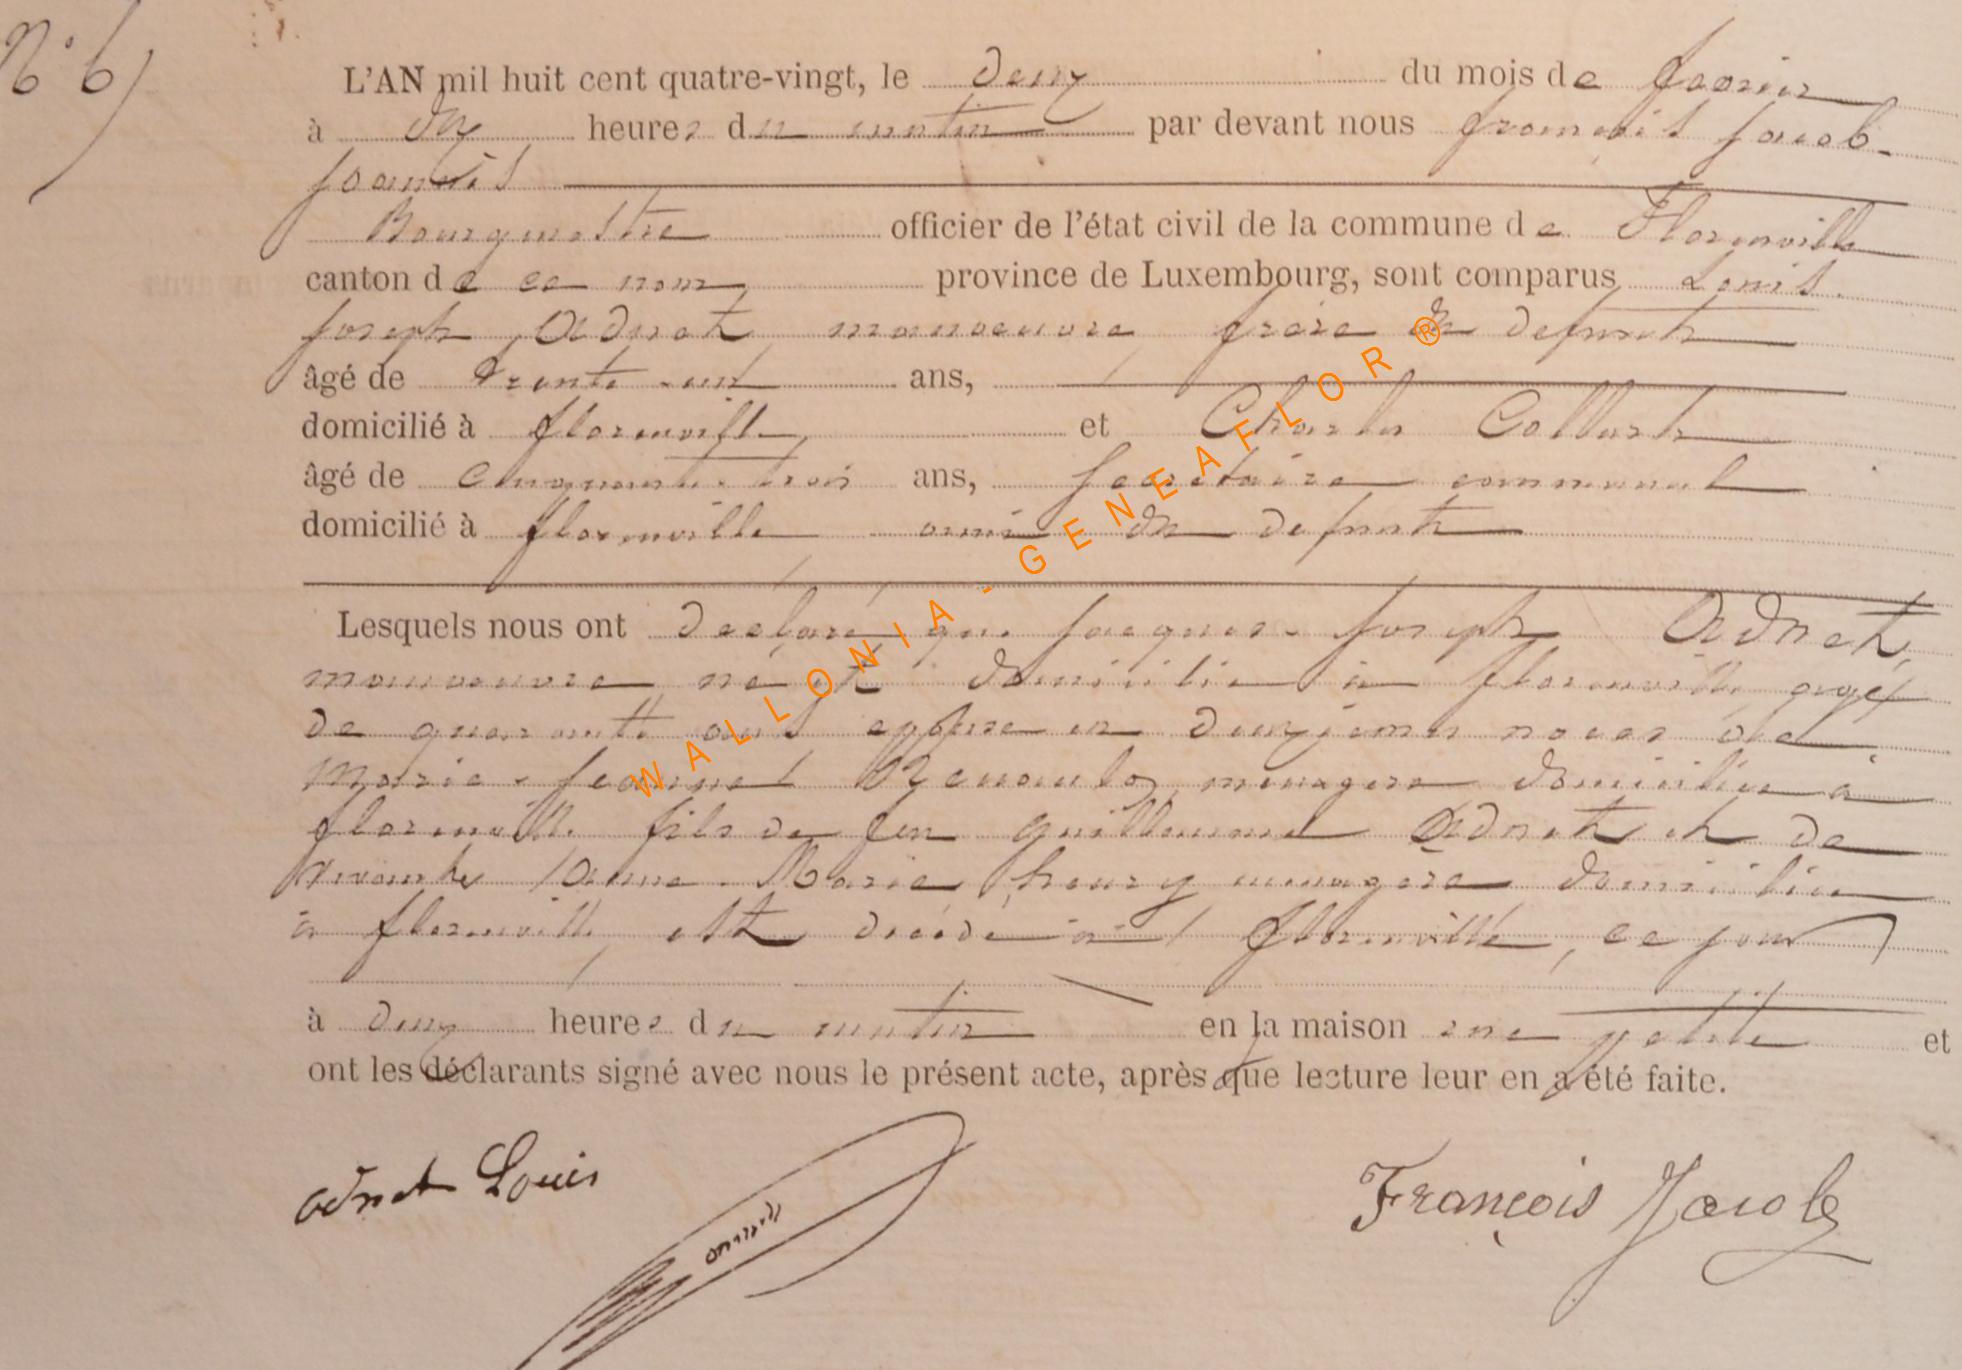 N° 6
L'AN mil huit cent quatre-vingt, le deux du mois de fevrier
à dix heures du matin par devant nous françois Jacob-
Joannès
Bourgmestre officier de l'état civil de la commune de Florenville
canton de ce nom province de Luxembourg, sont comparus Louis
Joseph Adnet, manoeuvre, frère du defunt
âgé de trente-un ans,
domicilié à florenville et Charles Collart
âgé de cinquante-trois ans, secrétaire communal
domicilié à florenville ami du defunt
Lesquels nous ont déclaré que Jacques-Joseph Adnet,
manoeuvre, né et domicilié à florenville, agé
de quarante ans époux en deuxièmes noces de
Marie-Jeanne menagère domiciliée à
florenville fils de feu guillaume Adnet et de
vivante Anne-Marie henry menagère domiciliée
à florenville, est décédé à florenville, ce jour
à deux heures du matin en la maison rue petite et
ont les déclarants signé avec nous le présent acte, après que lecture leur en a été faite.
adnet Louis
François Jacob
WALLONIA - GENEAFLOR ®